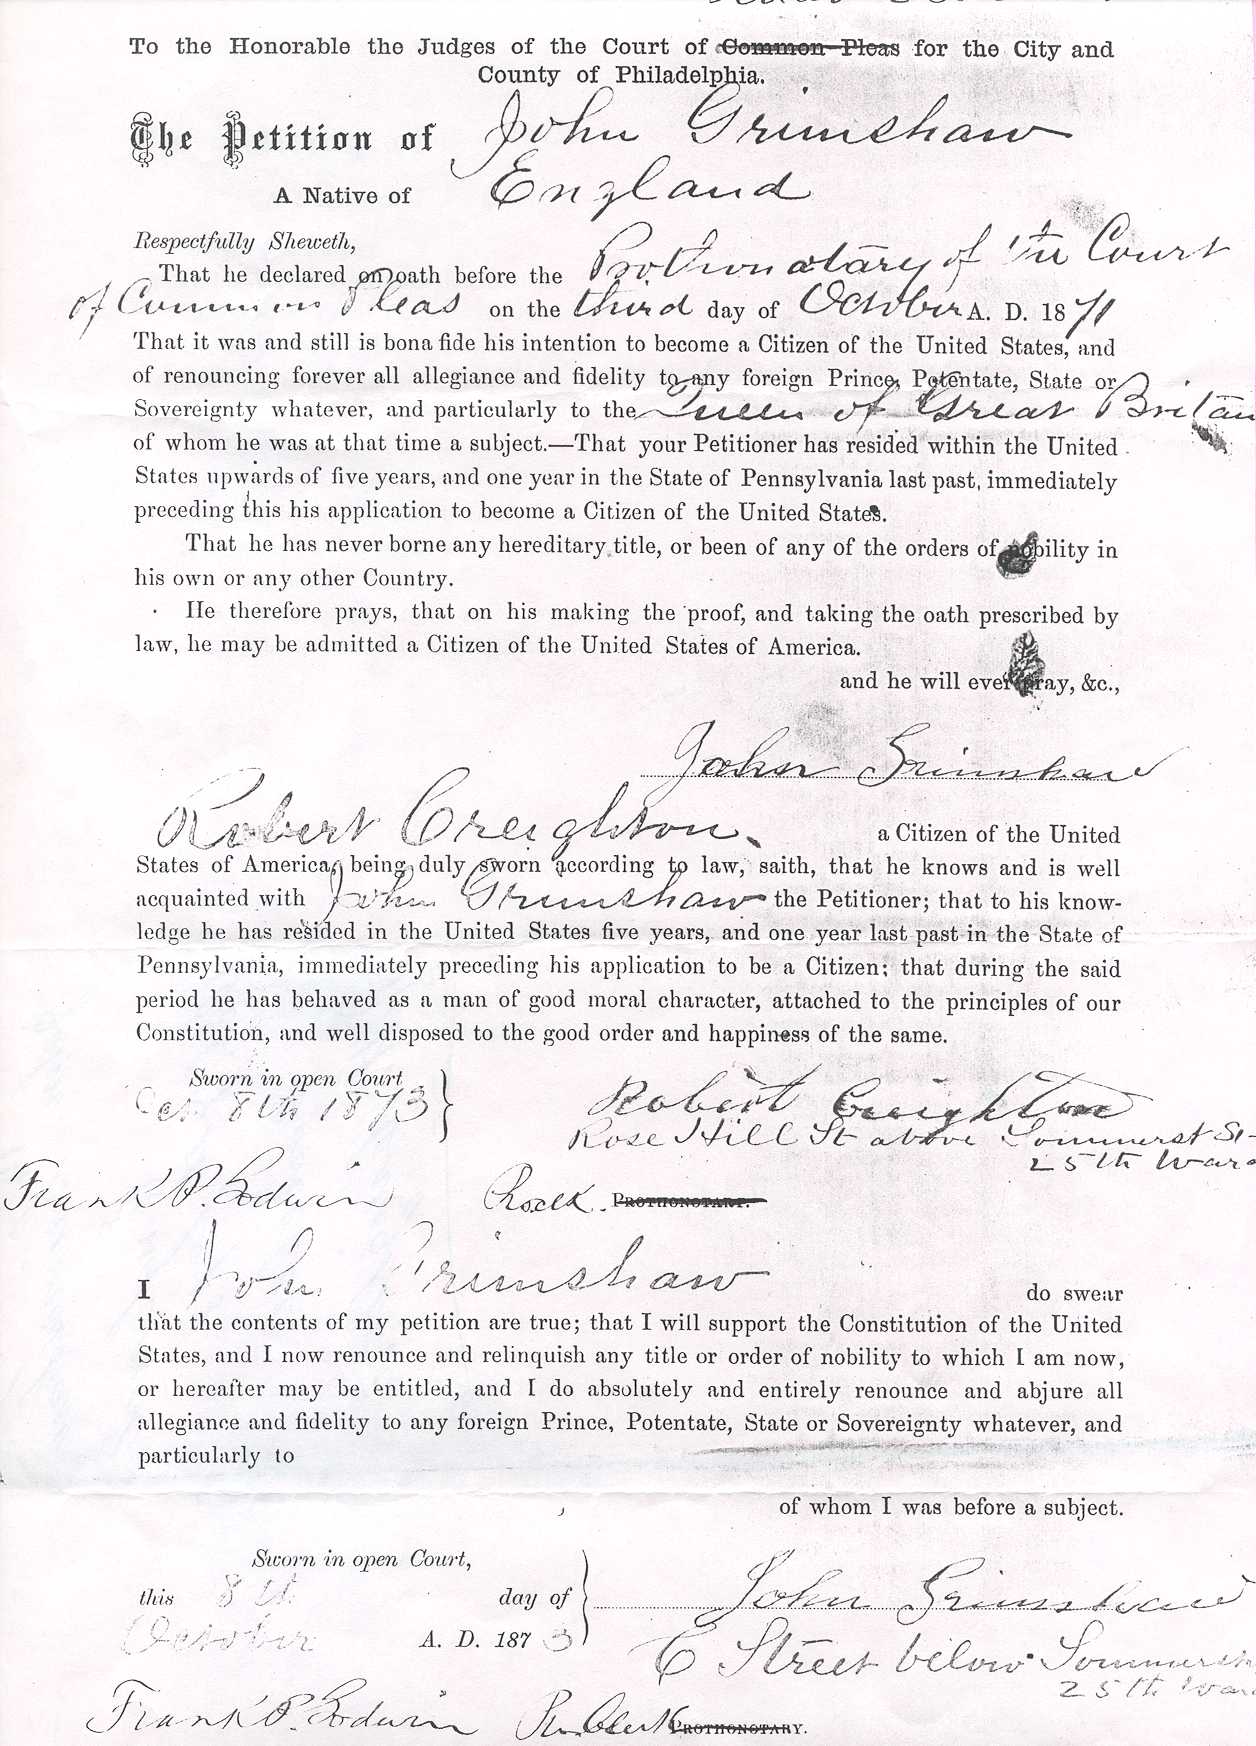 To the Honorable the Judges of the Court of Common Pleas for the City and
County of Philadelphia.
The Petition of John Grimshaw
A Native of England
Respectfully Sheweth,
That he declared on oath before the Prothonotary of the Court
of Common Pleas on the third day of October A. D. 1871
That it was and still is bona fide his intention to become a Citizen of the United States, and
of renouncing forever all allegiance and fidelity to any foreign Prince, Potentate, State or
Sovereignty whatever, and particularly to the Queen of Great Britain
of whom he was at that time a subject.—That your Petitioner has resided within the United
States upwards of five years, and one year in the State of Pennsylvania last past, immediately
preceding this his application to become a Citizen of the United States.
That he has never borne any hereditary title, or been of any of the orders of nobility in
his own or any other Country.
He therefore prays, that on his making the proof, and taking the oath prescribed by
law, he may be admitted a Citizen of the United States of America.
and he will ever pray, &c.,
John Grimshaw
Robert Creighton a Citizen of the United
States of America, being duly sworn according to law, saith, that he knows and is well
acquainted with John Grimshaw the Petitioner; that to his know-
ledge he has resided in the United States five years, and one year last past in the State of
Pennsylvania, immediately preceding his application to be a Citizen; that during the said
period he has behaved as a man of good moral character, attached to the principles of our
Constitution, and well disposed to the good order and happiness of the same.
Sworn in open Court
Oct 8th 1873
Robert Creighton
Rose Hill St above Sommerst St
25th Ward
Frank P. Godwin Pro. Clk. PROTHONOTARY.
I John Grimshaw do swear
that the contents of my petition are true; that I will support the Constitution of the United
States, and I now renounce and relinquish any title or order of nobility to which I am now,
or hereafter may be entitled, and I do absolutely and entirely renounce and abjure all
allegiance and fidelity to any foreign Prince, Potentate, State or Sovereignty whatever, and
particularly to
of whom I was before a subject.
Sworn in open Court,
this 8th day of
October A. D. 1873
John Grimshaw
C Street below Sommerst
25th Ward
Frank P. Godwin Pro. Clerk PROTHONOTARY.